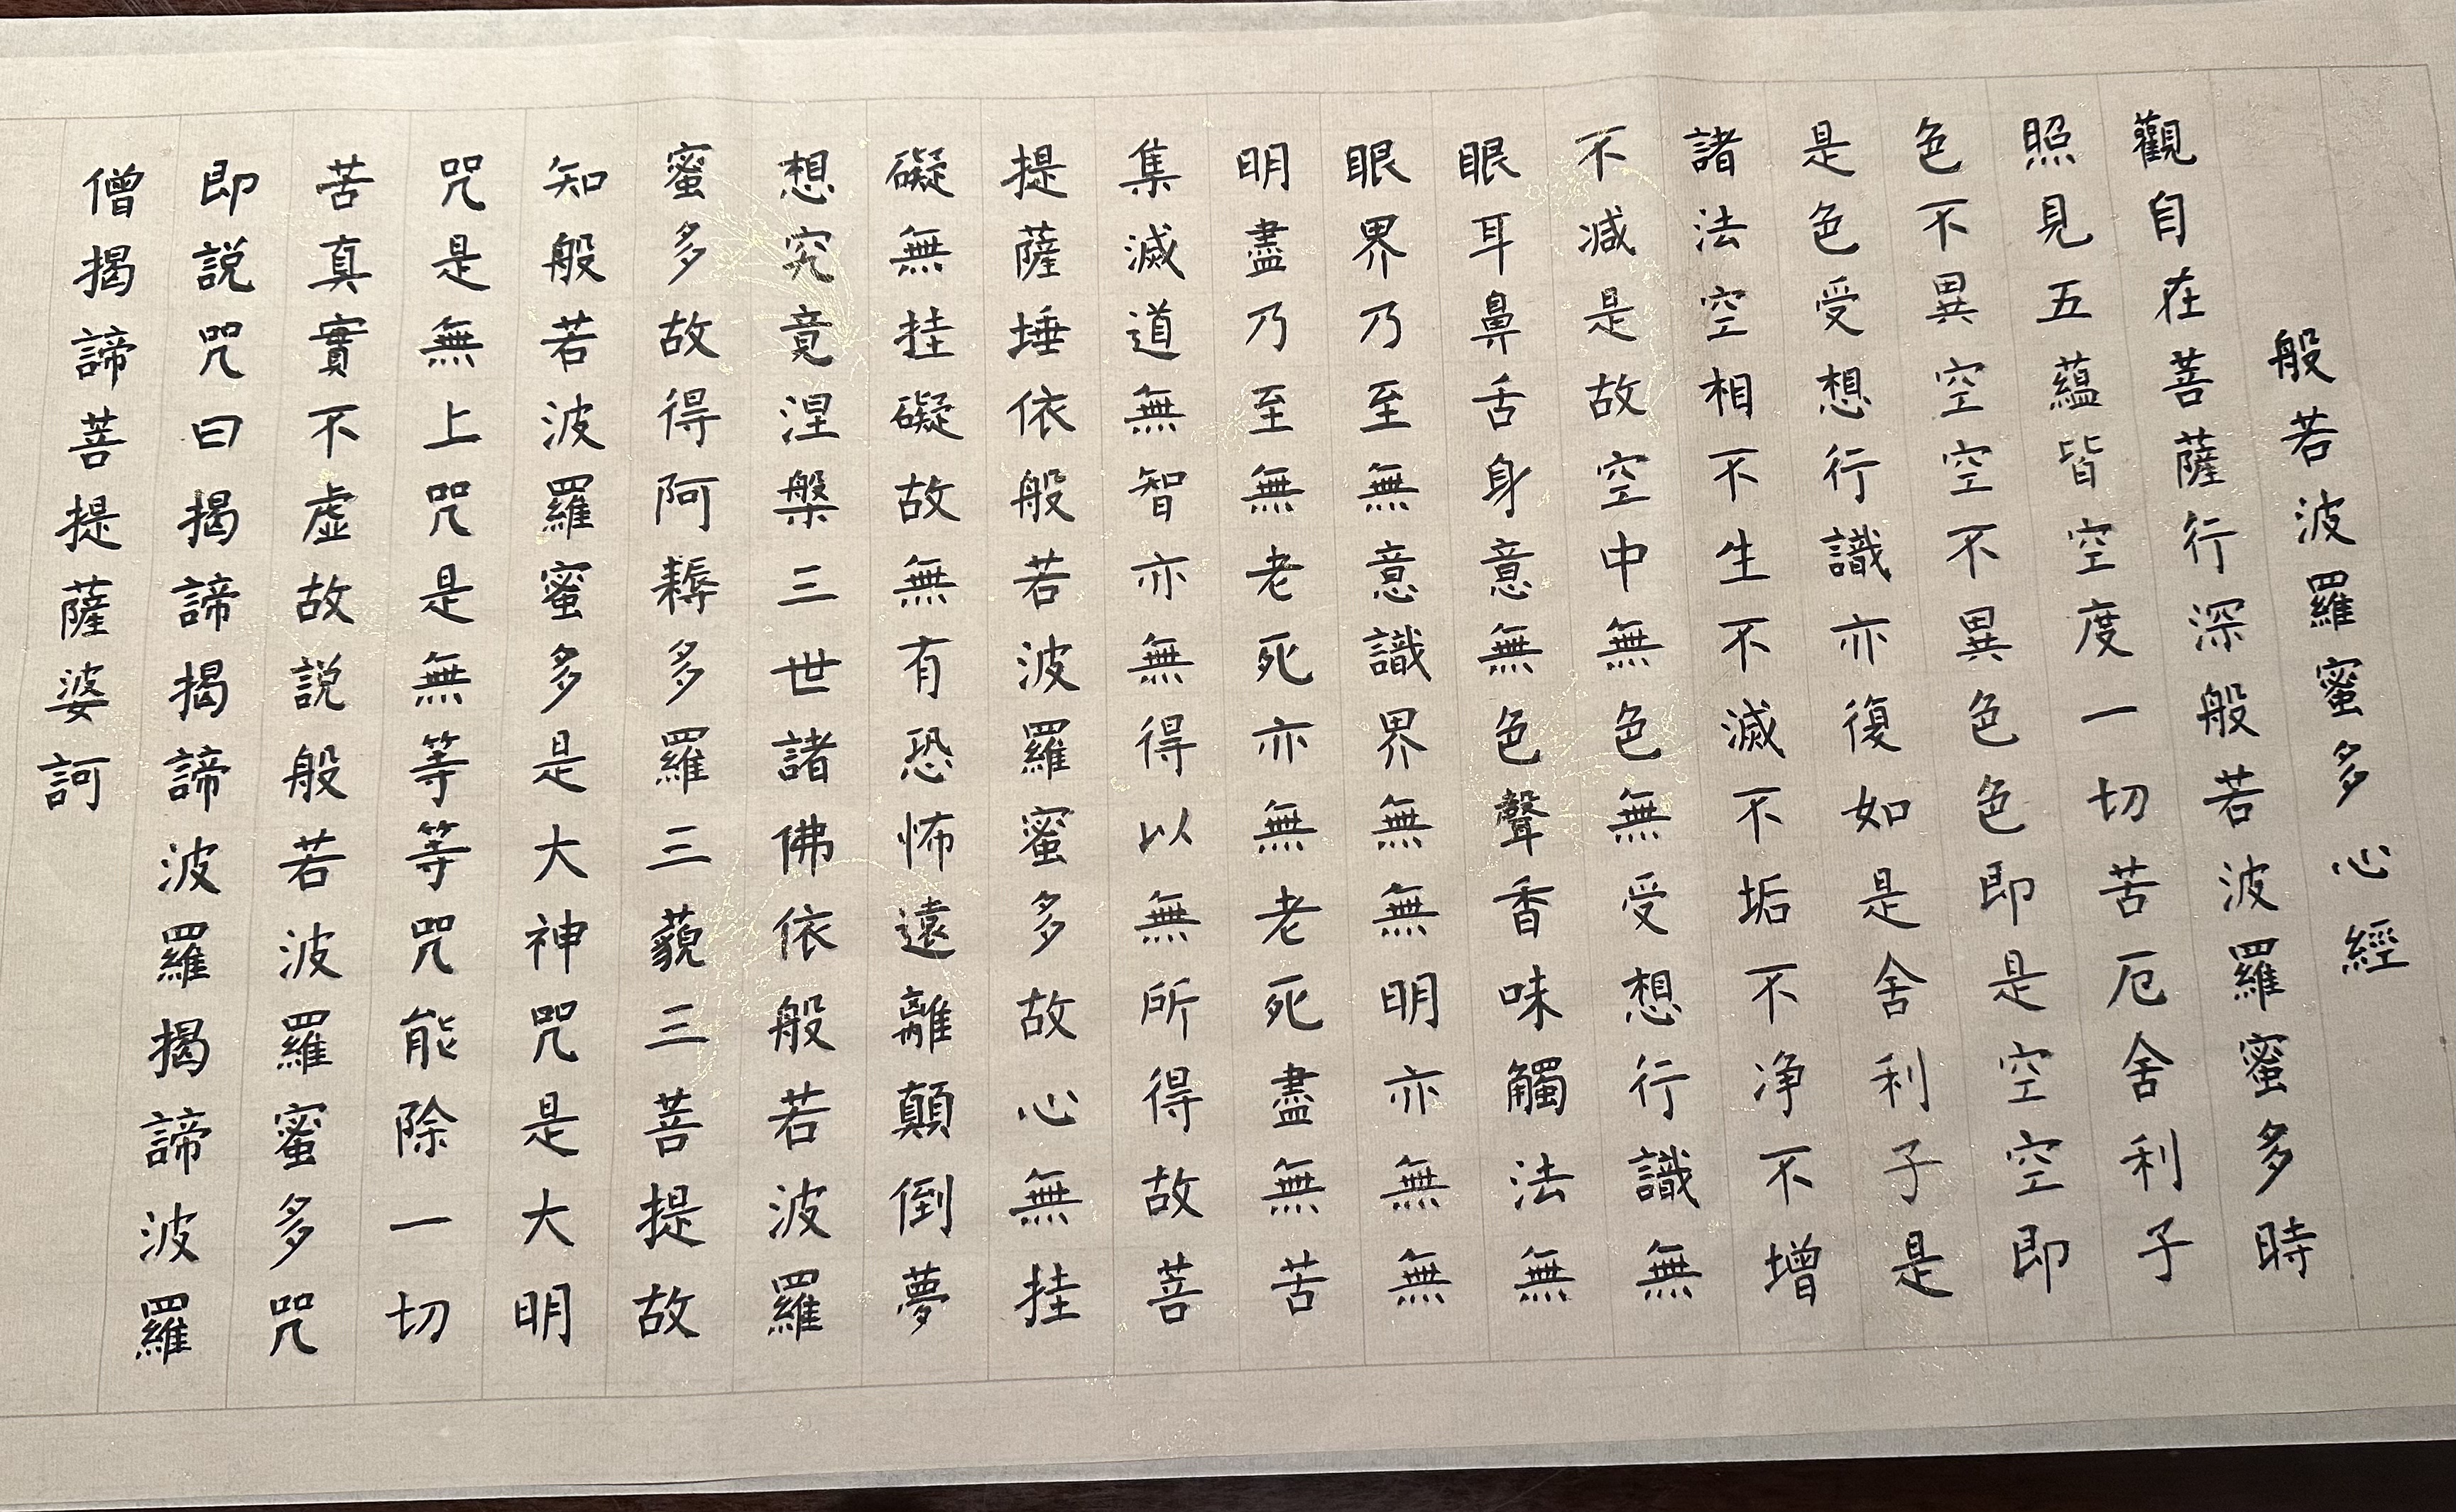 般若波羅蜜多心經
觀自在菩薩行深般若波羅蜜多時
照見五蘊皆空度一切苦厄舍利子
色不異空空不異色色即是空空即
是色受想行識亦復如是舍利子是
諸法空相不生不滅不垢不净不增
不减是故空中無色無受想行識無
眼耳鼻舌身意無色聲香味觸法無
眼界乃至無意識界無無明亦無無
明盡乃至無老死亦無老死盡無苦
集滅道無智亦無得以無所得故菩
提薩埵依般若波羅蜜多故心無挂
礙無挂礙故無有恐怖遠離顛倒夢
想究竟涅槃三世諸佛依般若波羅
蜜多故得阿耨多羅三藐三菩提故
知般若波羅蜜多是大神咒是大明
咒是無上咒是無等等咒能除一切
苦真實不虛故説般若波羅蜜多咒
即説咒曰揭諦揭諦波羅揭諦波羅
僧揭諦菩提薩婆訶